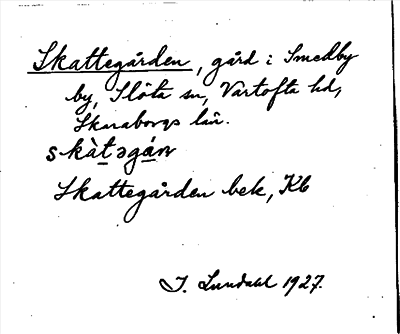 Skattegården, gård i Smedby
by, Slöta sn, Vartofta hd,
Skaraborgs län.
skàt̲əgán̲
Skattegården bek, Kb
I. Lundahl 1927.